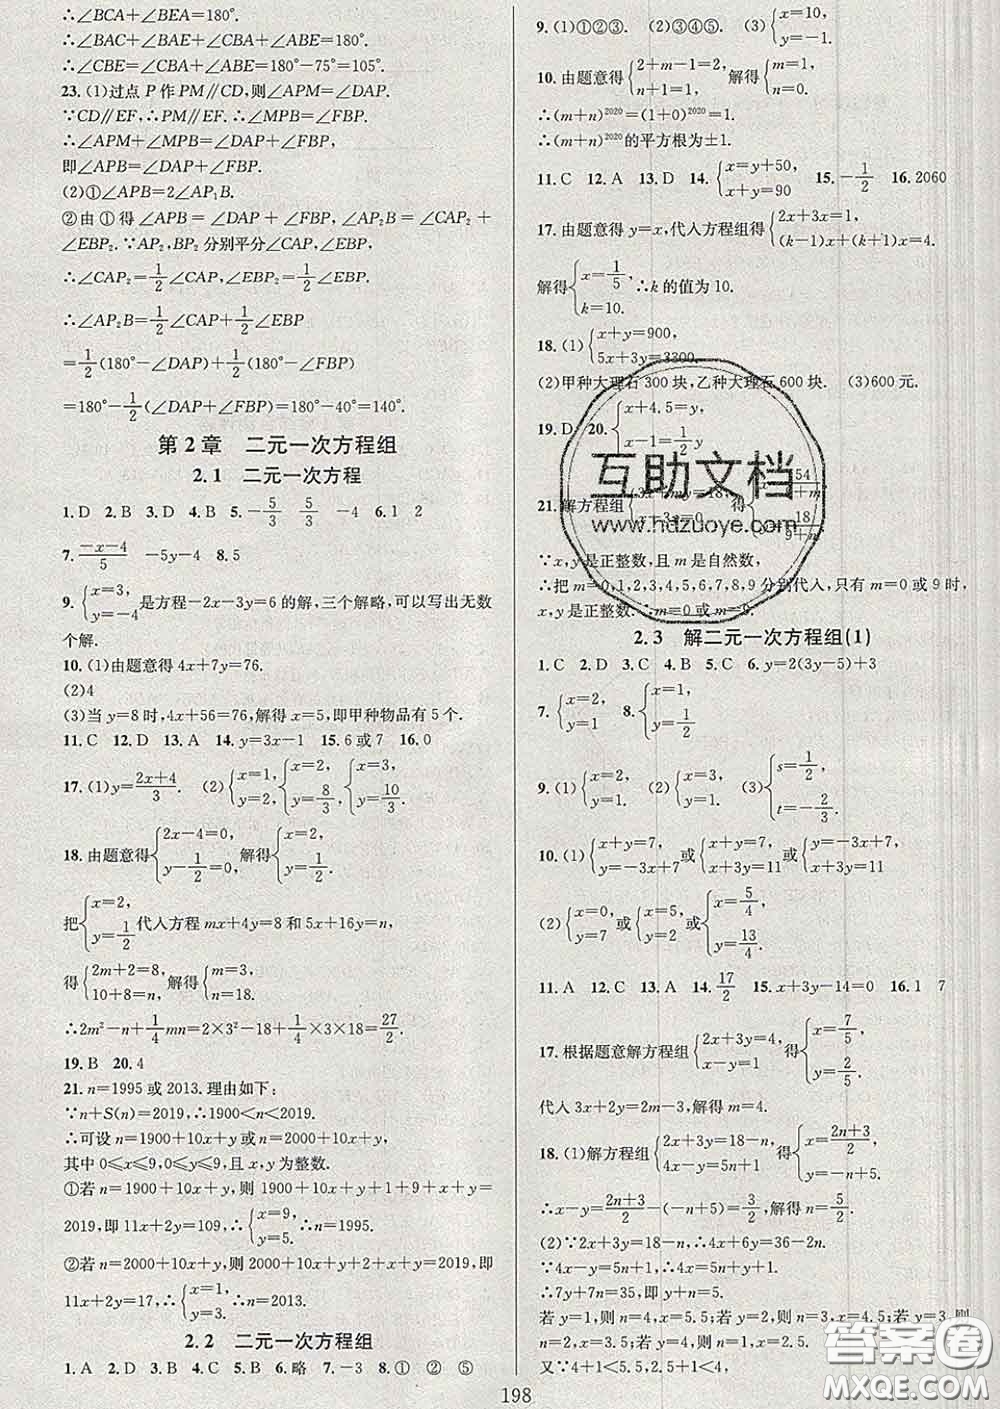 ∴∠BCA+∠BEA=180°.
∴∠BAC+∠BAE+∠CBA+∠ABE=180°.
∴∠CBE=∠CBA+∠ABE=180°-75°=105°.
23.(1)过点 P 作 PM∥CD,则∠APM=∠DAP.
∵CD∥EF,∴PM∥EF.∴∠MPB=∠FBP.
∴∠APM+∠MPB=∠DAP+∠FBP.
即∠APB=∠DAP+∠FBP.
(2)①∠APB=2∠AP₁B.
②由①得∠APB=∠DAP+∠FBP,∠AP₂B=∠CAP₂+
∠EBP₂.∵AP₂,BP₂ 分别平分∠CAP,∠EBP,
∴∠CAP₂=1/2∠CAP,∠EBP₂=1/2∠EBP.
∴∠AP₂B=1/2∠CAP+1/2∠EBP
=1/2(180°-∠DAP)+1/2(180°-∠FBP)
=180°-1/2(∠DAP+∠FBP)=180°-40°=140°.
第2章 二元一次方程组
2.1 二元一次方程
1.D 2.B 3.D 4.B 5.-5/3 5/3 -4 6.1 2
7.(-x-4)/5 -5y-4 8.5
9.{x=3, y=-4 是方程-2x-3y=6的解,三个解略,可以写出无数
个解.
10.(1)由题意得 4x+7y=76.
(2)4
(3)当 y=8 时,4x+56=76,解得 x=5,即甲种物品有 5 个.
11.C 12.D 13.A 14.y=3x-1 15.6或7 16.0
17.(1)y=(2x+4)/3. (2){x=1, y=2, {x=2, y=8/3, {x=3, y=10/3.
18.由题意得{2x-4=0, y-1/2=0, 解得{x=2, y=1/2.
把{x=2, y=1/2 代入方程 mx+4y=8 和 5x+16y=n,
得{2m+2=8, 10+8=n, 解得{m=3, n=18.
∴2m²-n+1/4mn=2×3²-18+1/4×3×18=27/2.
19.B 20.4
21.n=1995 或 2013.理由如下:
∵n+S(n)=2019,∴1900<n<2019.
∴可设 n=1900+10x+y 或 n=2000+10x+y,
其中 0≤x≤9,0≤y≤9,且 x,y 为整数.
①若 n=1900+10x+y,则 1900+10x+y+1+9+x+y=
2019,即 11x+2y=109,∴{x=9, y=5. ∴n=1995.
②若 n=2000+10x+y,则 2000+10x+y+2+x+y=2019,即
11x+2y=17,∴{x=1, y=3. ∴n=2013.
2.2 二元一次方程组
1.A 2.D 3.B 4.C 5.B 6.略 7.-3 8.① ② ⑤
9.(1)①②③. (2)③④⑤. (3){x=10, y=-1.
10.由题意得{2+m-1=2, n+1=1, 解得{m=1, n=0.
∴(m+n)²⁰²⁰=(1+0)²⁰²⁰=1.
∴(m+n)²⁰²⁰的平方根为±1.
11.C 12.A 13.D 14.{x=y+50, x+y=90 15.-1/2 16.2060
17.由题意得 y=x,代入方程组得{2x+3x=1, (k-1)x+(k+1)x=4.
解得{x=1/5, k=10. ∴k 的值为 10.
18.(1){x+y=900, 5x+3y=3300.
(2)甲种大理石 300 块,乙种大理石 600 块. (3)600 元.
19.D 20.{x+4.5=y, x-1=1/2y
互助文档
www.hdzuoye.com
21.解方程组{3x+my=18, x-3y=0 得{54/9+m, 18/9+m.
∵x,y 是正整数,且 m 是自然数,
∴把 m=0,1,2,3,4,5,6,7,8,9 分别代入,只有 m=0 或 9 时,
x,y 是正整数.∴m=0 或 m=9.
2.3 解二元一次方程组(1)
1.C 2.D 3.C 4.B 5.C 6.y=2(3y-5)+3
7.{x=2, y=1 8.{x=1, y=1/2
9.(1){x=2, y=1. (2){x=3, y=1. (3){s=1/2, t=-2/3.
10.(1){x+y=7, y=-3x+7 或{x+y=7, x+3y=11 或{y=-3x+7, x+3y=11
(2){x=0, y=7 或{x=5, y=2 或{x=5/4, y=13/4.
11.A 12.C 13.A 14.17/2 15.x+3y-14=0 16.1 7
17.根据题意解方程组{2x+3y=4, x-y=1 得{x=7/5, y=2/5.
代入 2x+3y=2m-3,解得 m=4.
18.(1)解方程组{2x+3y=18-n, 4x-y=5n+1 得{x=(2n+3)/2, y=-n+5.
∴x-y=(2n+3)/2-(-n+5)=3/2,解得 n=5/2.
(2)∵2x=2n+3,∴4x+6y=4n+6+6y.
∵4x-y=5n+1,∴4x=5n+1+y.
∴7y+7n=35,即 y+n=5.
若 y=1,则 n=4,x=5.5;若 y=2,则 n=3,x=4.5;若 y=3,则
n=2,x=3.5;若 y=4,则 n=1,x=2.5.
又∵4+1<5.5,2.5+1<4,
198
答案圈
MXQE.COM